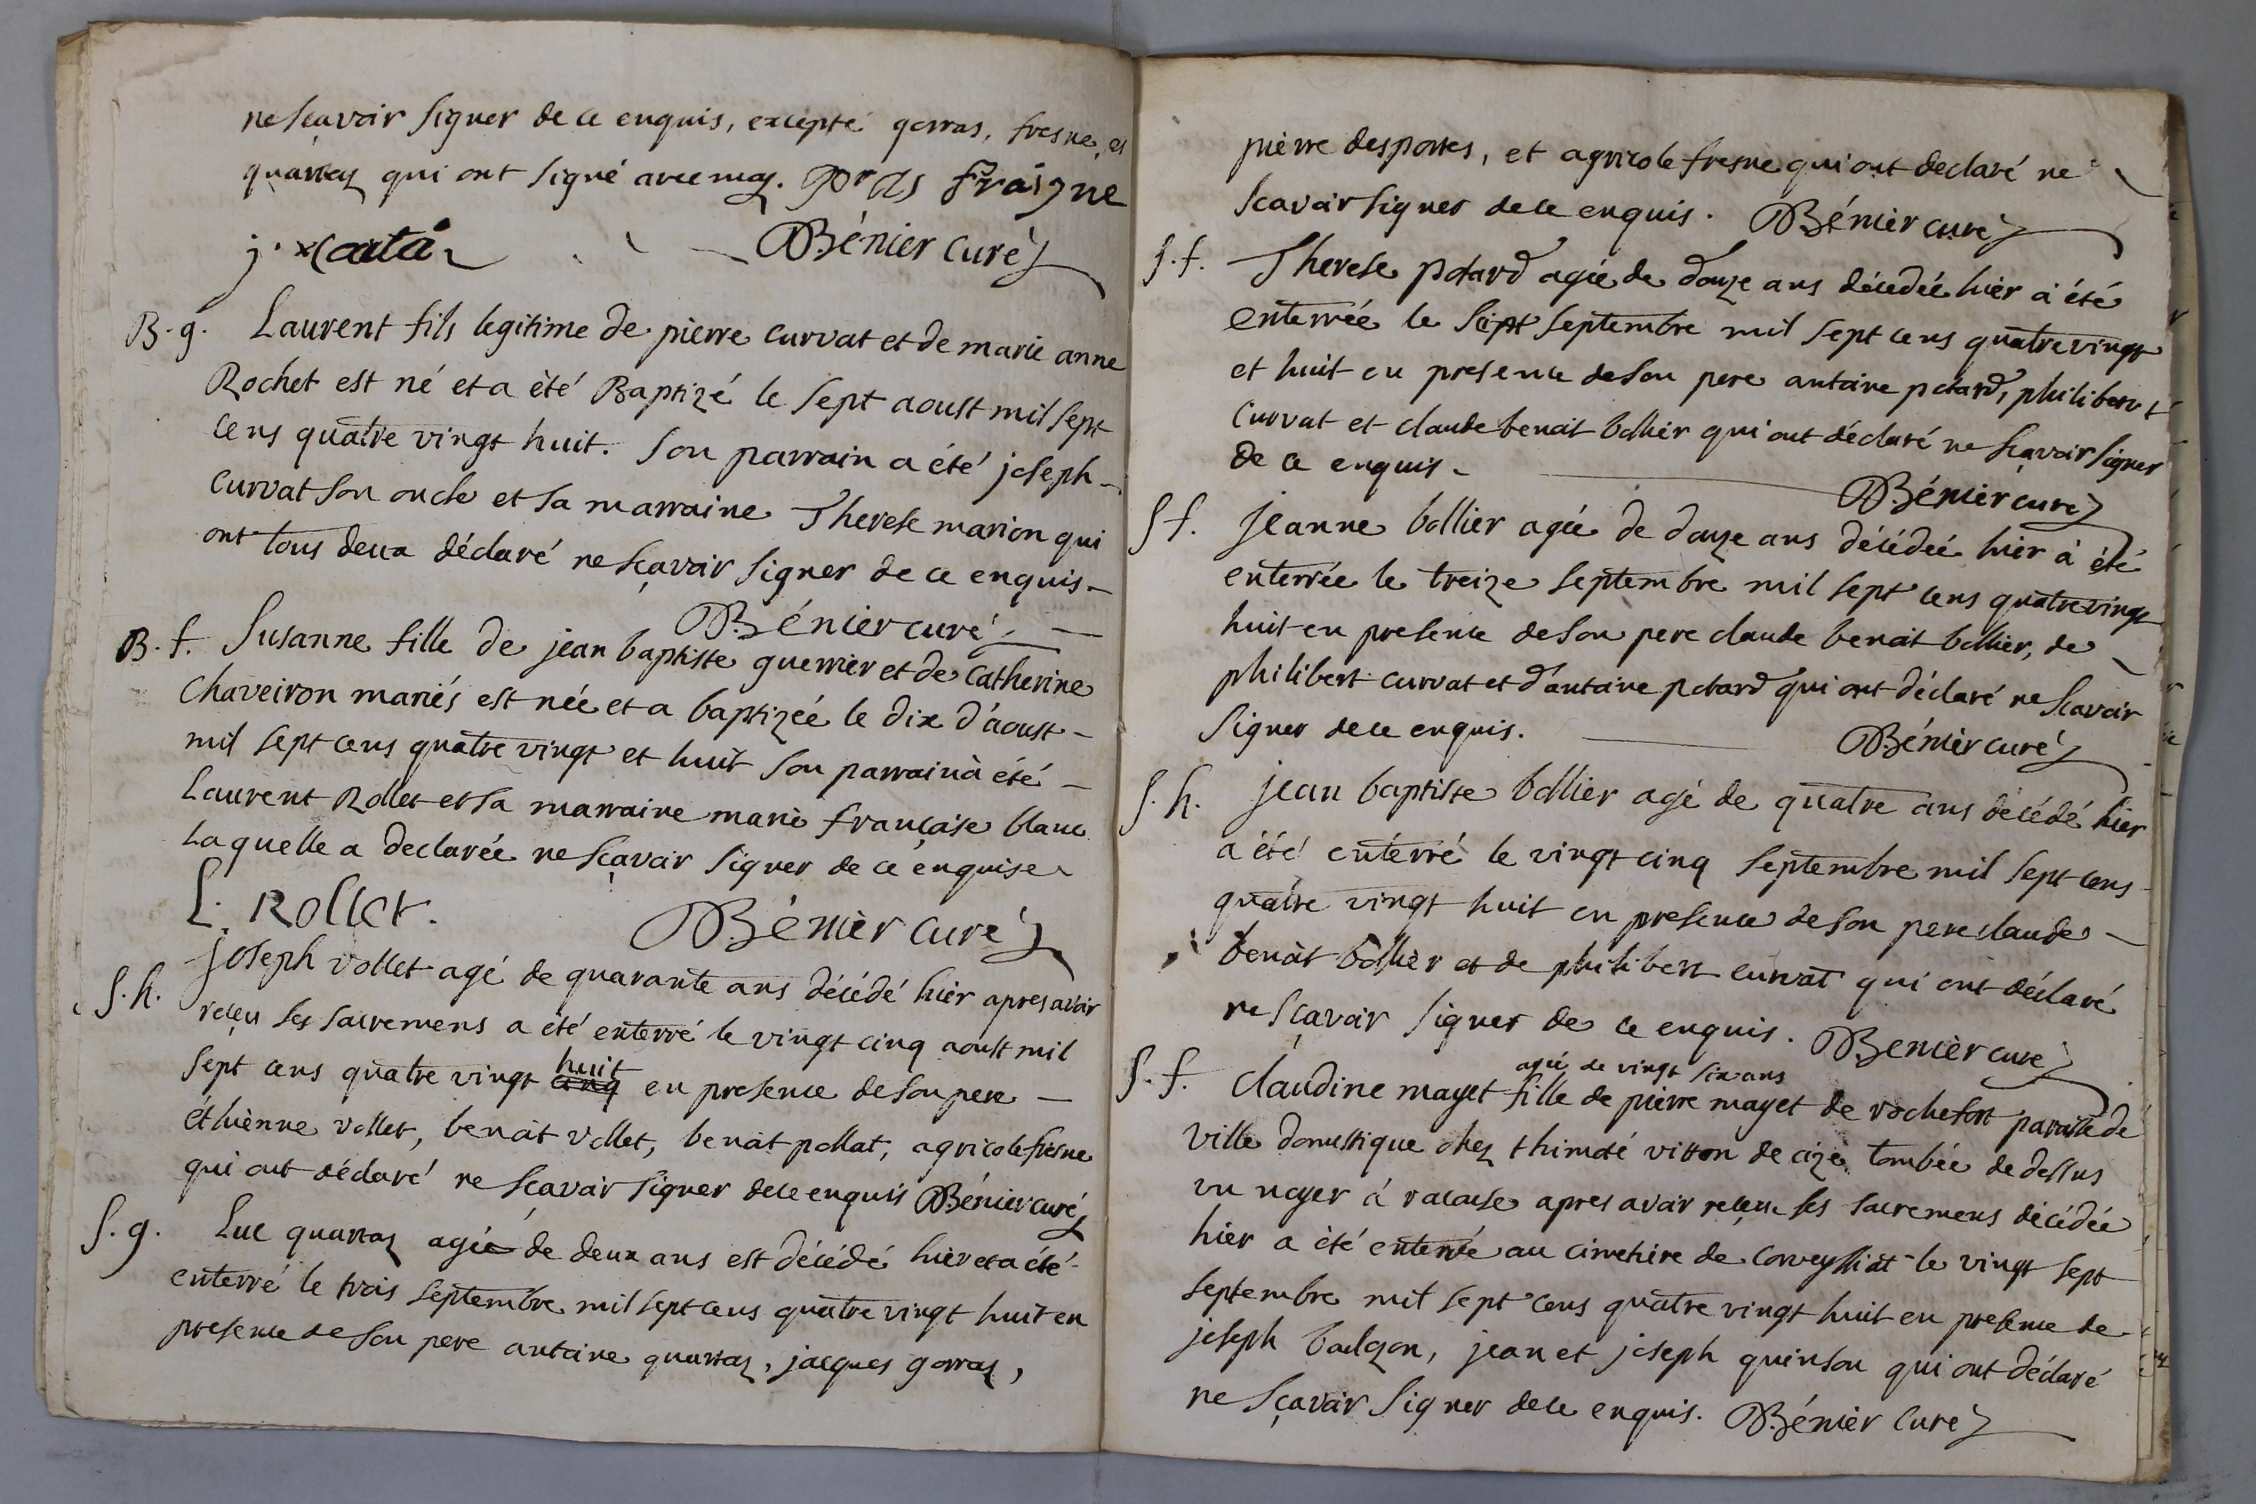 ne sçavoir signer de ce enquis, excepté gorras, fresne, et
quarraz qui ont signé avec moy. Gorras fraisne
Bénier curé
B. g. Laurent fils legitime de pierre curvat et de marie anne
Rochet est né et a été Baptizé le sept aoust mil sept
cens quatre vingt huit. son parrain a été joseph
curvat son oncle et sa marraine Therese marion qui
ont tous deux déclaré ne sçavoir signer de ce enquis
Bénier curé
B. f. Susanne fille de jean baptiste guerrier et de Catherine
Chaveiron mariés est née et a baptizéé le dix d'aoust
mil sept cens quatre vingt et huit son parrain à été
Laurent Rollet et sa marraine marie françoise blanc
Laquelle a declarée ne sçavoir signer de ce enquise
L. Rollet. Bénier curé
S. h. joseph vollet agé de quarante ans décédé hier apres avoir
reçeu ses sacremens a été enterré le vingt cinq aoust mil
sept cens quatre vingt cinq huit en presence de son pere
éthiènne vollet, benoit vollet, benoit pollat, agricole fresne
qui ont déclaré ne sçavoir signer de ce enquis Bénier curé
S. g. Luc quarraz agéé de deux ans est décédé hier et a été
enterré le trois septembre mil sept cens quatre vingt huit en
presence de son pere antoine quarraz, jacques gorraz,
pierre desportes, et agricole fresne qui ont declaré ne
scavoir signer de ce enquis. Bénier curé
S. f. Therese potard agée de douze ans décédée hier a été
enterrée le sept septembre mil sept cens quatre vingt
et huit en presence de son pere antoine potard, philibert
curvat et claude benoit bollier qui ont déclaré ne sçavoir signer
de ce enquis. Bénier curé
S f. jeanne bollier agée de douze ans décédée hier à été
enterrée le treize septembre mil sept cens quatre vingt
huit en presence de son pere claude benoit bollier, de
philibert curvat et d'antoine potard qui ont déclaré ne scavoir
signer de ce enquis. Bénier curé
S. h. jean baptiste bollier agé de quatre ans décédé hier
a été enterré le vingt cinq septembre mil sept cens
quatre vingt huit en presence de son pere claude
benoit bollier et de philibert curvat qui ont déclaré
ne sçavoir signer de ce enquis. Benièr curé
agée de vingt six ans
S. f. Claudine mayet fille de pierre mayet de rochefort paroisse de
ville domestique chez thimoté vitton de cize tombée de dessus
un noyer à racouse apres avoir reçeu ses sacremens décédée
hier a été enterrée au cimetiere de corveyssiat le vingt sept
septembre mil sept cens quatre vingt huit en presence de
joseph baulzon, jean et joseph quinson qui ont déclaré
ne sçavoir signer de ce enquis. Bénièr curé